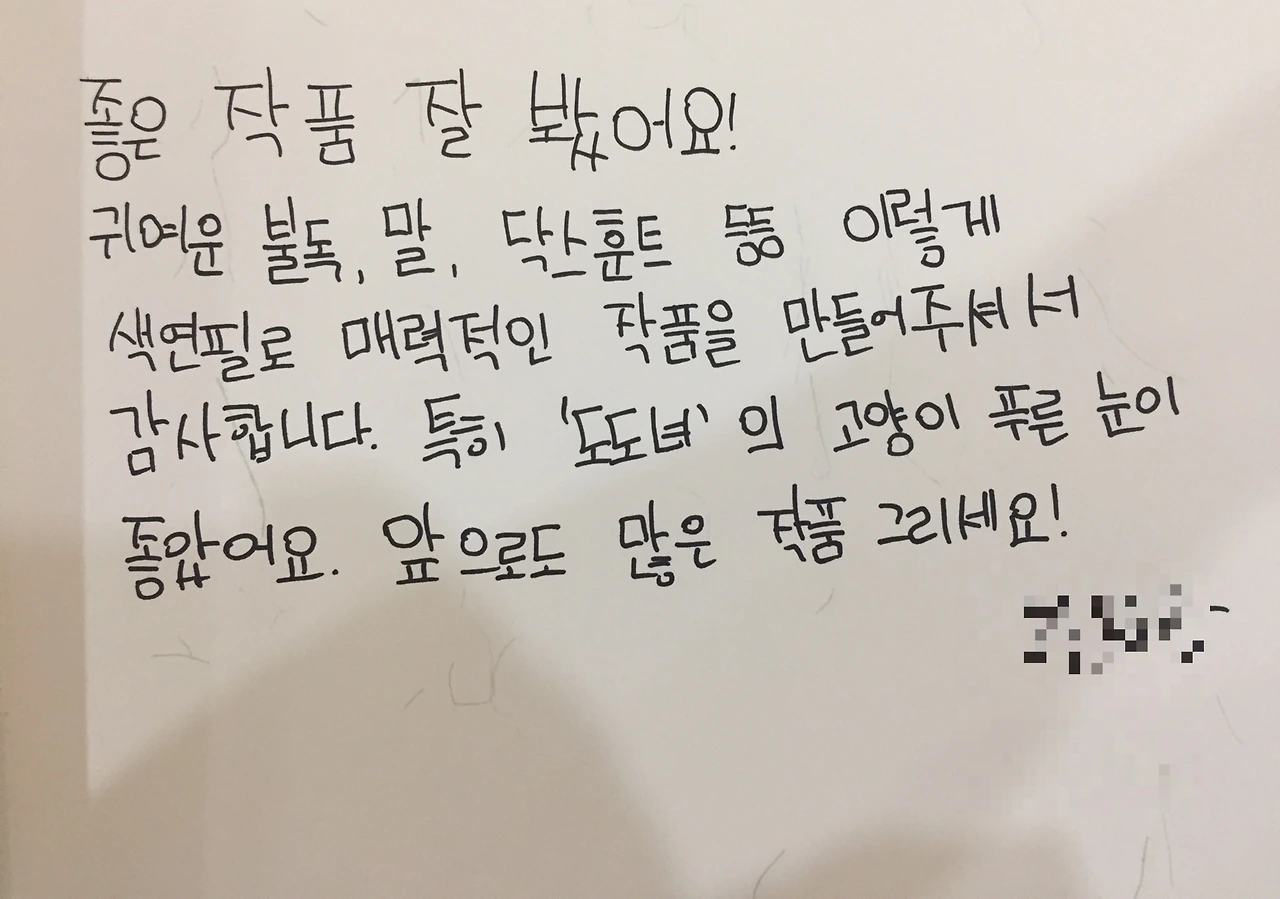 좋은 작품 잘 봤어요!
귀여운 불독, 말, 닥스훈트 뜽 이렇게
색연필로 매력적인 작품을 만들어주셔서
감사합니다. 특히 '도도녀'의 고양이 푸른 눈이
좋았어요. 앞으로도 많은 작품 그리세요!